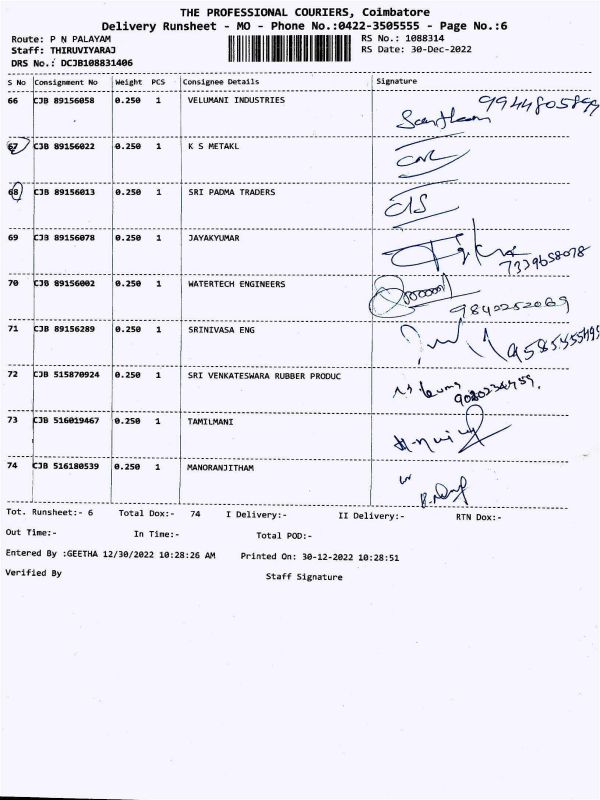 THE PROFESSIONAL COURIERS, Coimbatore
Delivery Runsheet - MO - Phone No.:0422-3505555 - Page No.:6
Route: P N PALAYAM RS No.: 1088314
Staff: THIRUVIYARAJ RS Date: 30-Dec-2022
DRS No.: DCJB108831406
S No Consignment No Weight PCS Consignee Details Signature
66 CJB 89156058 0.250 1 VELUMANI INDUSTRIES 9944805899
67 CJB 89156022 0.250 1 K S METAKL
68 CJB 89156013 0.250 1 SRI PADMA TRADERS
69 CJB 89156078 0.250 1 JAYAKYUMAR 7339658078
70 CJB 89156002 0.250 1 WATERTECH ENGINEERS 9840252069
71 CJB 89156289 0.250 1 SRINIVASA ENG
72 CJB 515870924 0.250 1 SRI VENKATESWARA RUBBER PRODUC
73 CJB 516019467 0.250 1 TAMILMANI
74 CJB 516180539 0.250 1 MANORANJITHAM
Tot. Runsheet:- 6 Total Dox:- 74 I Delivery:- II Delivery:- RTN Dox:-
Out Time:- In Time:- Total POD:-
Entered By :GEETHA 12/30/2022 10:28:26 AM Printed On: 30-12-2022 10:28:51
Verified By Staff Signature